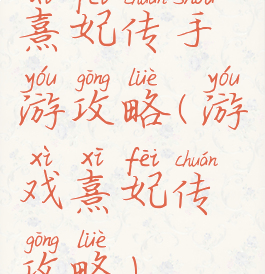 熹妃传手
yóu gōng lüè yóu
游攻略(游
xì xī fēi chuán
戏熹妃传
gōng lüè
攻略)